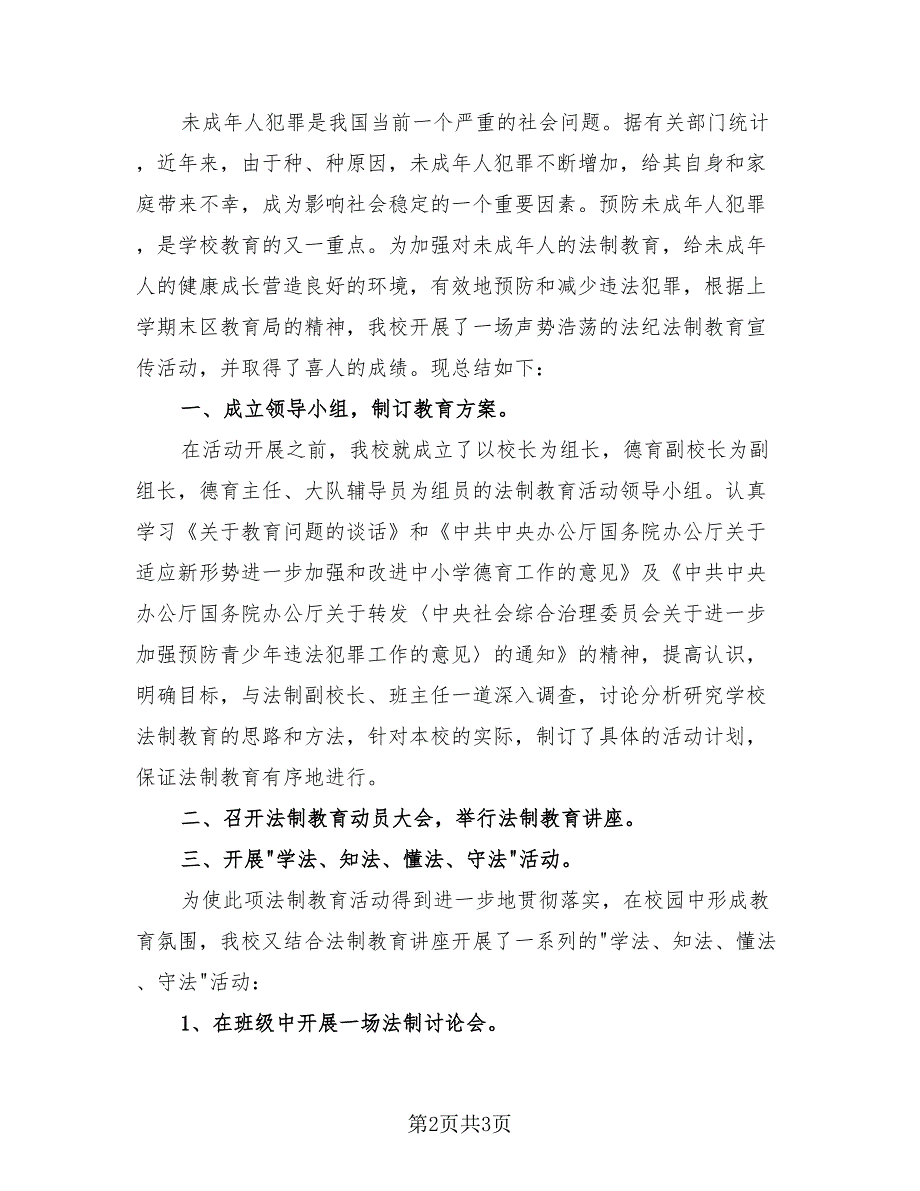 未成年人犯罪是我国当前一个严重的社会问题。据有关部门统计
，近年来，由于种、种原因，未成年人犯罪不断增加，给其自身和家
庭带来不幸，成为影响社会稳定的一个重要因素。预防未成年人犯罪
，是学校教育的又一重点。为加强对未成年人的法制教育，给未成年
人的健康成长营造良好的环境，有效地预防和减少违法犯罪，根据上
学期末区教育局的精神，我校开展了一场声势浩荡的法纪法制教育宣
传活动，并取得了喜人的成绩。现总结如下：
一、成立领导小组，制订教育方案。
在活动开展之前，我校就成立了以校长为组长，德育副校长为副
组长，德育主任、大队辅导员为组员的法制教育活动领导小组。认真
学习《关于教育问题的谈话》和《中共中央办公厅国务院办公厅关于
适应新形势进一步加强和改进中小学德育工作的意见》及《中共中央
办公厅国务院办公厅关于转发〈中央社会综合治理委员会关于进一步
加强预防青少年违法犯罪工作的意见〉的通知》的精神，提高认识，
明确目标，与法制副校长、班主任一道深入调查，讨论分析研究学校
法制教育的思路和方法，针对本校的实际，制订了具体的活动计划，
保证法制教育有序地进行。
二、召开法制教育动员大会，举行法制教育讲座。
三、开展"学法、知法、懂法、守法"活动。
为使此项法制教育活动得到进一步地贯彻落实，在校园中形成教
育氛围，我校又结合法制教育讲座开展了一系列的"学法、知法、懂法
、守法"活动：
1、在班级中开展一场法制讨论会。
第2页共3页